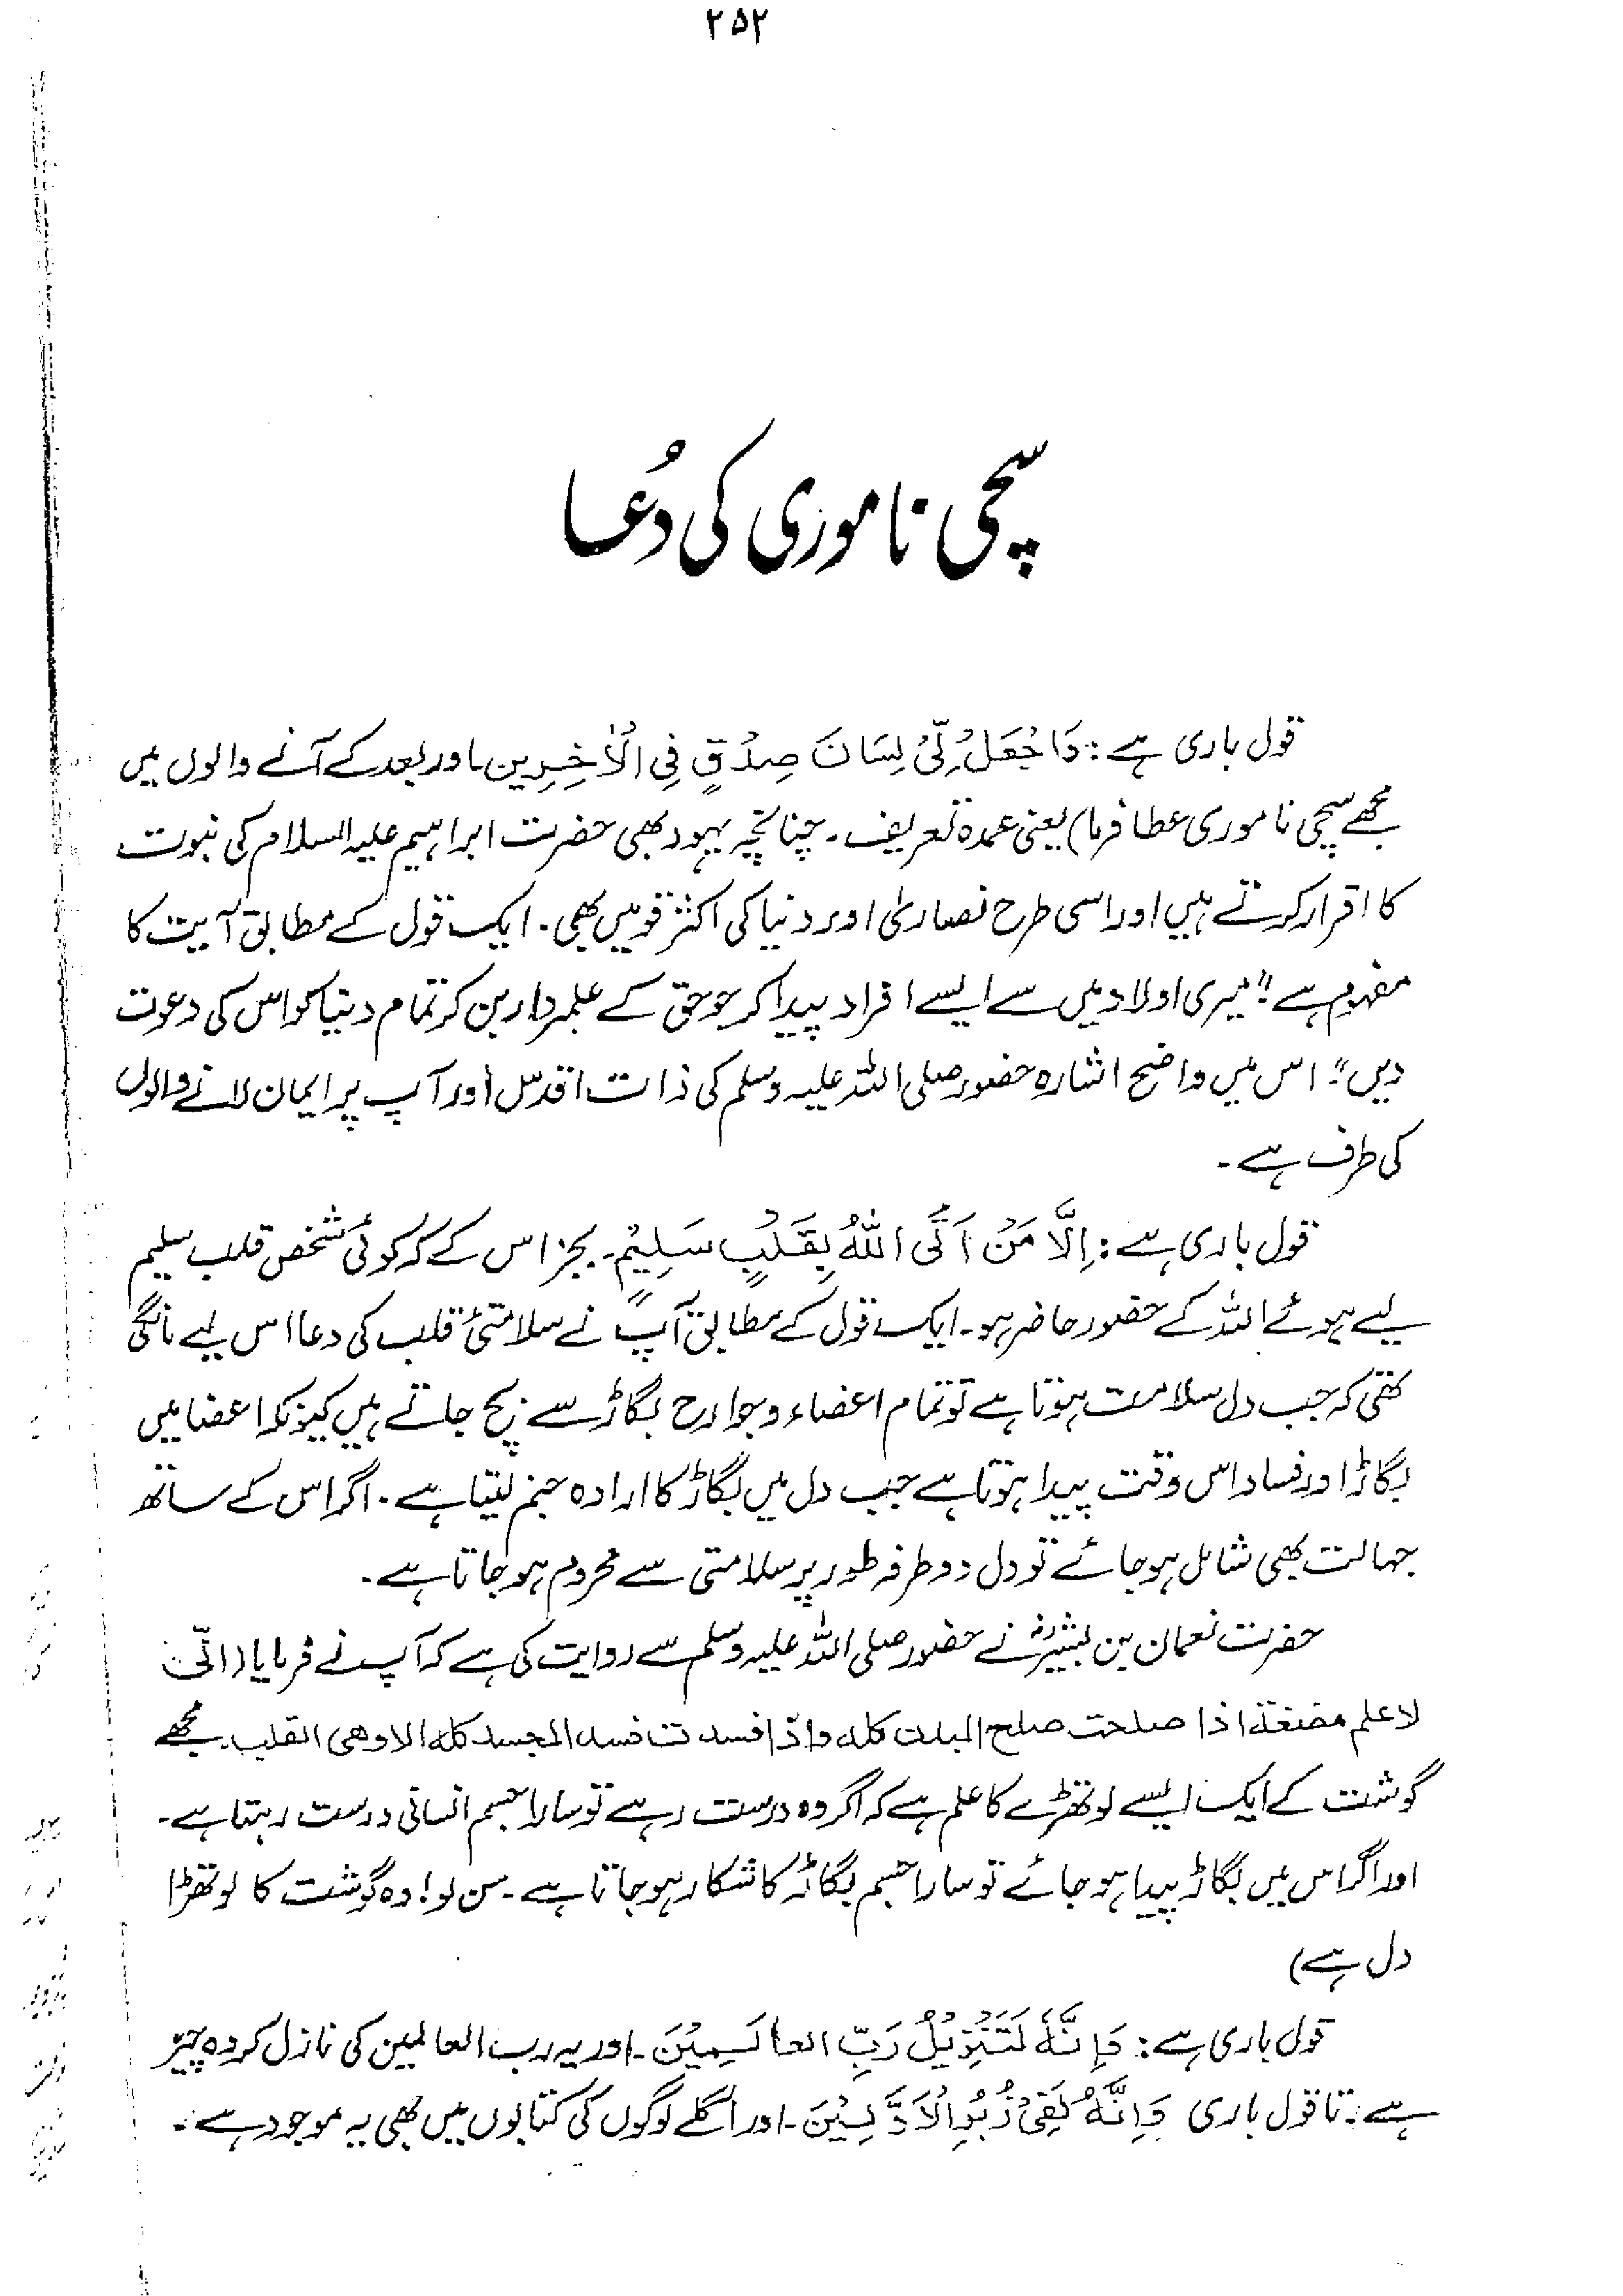 ۲۵۲
سچی ناموری کی دُعا
قول باری ہے: وَاجْعَلْ لِّیْ لِسَانَ صِدْقٍ فِی الْاٰخِرِین۔ اور بعد کے آنے والوں میں
مجھے سچی ناموری عطا فرما) یعنی عمدہ تعریف۔ چنانچہ یہود بھی حضرت ابراہیم علیہ السلام کی نبوت
کا اقرار کرتے ہیں اور اسی طرح نصاریٰ اور دنیا کی اکثر قومیں بھی۔ ایک قول کے مطابق آیت کا
مفہوم ہے "میری اولاد میں سے ایسے افراد پیدا کر جو حق کے علمبردار بن کر تمام دنیا کو اس کی دعوت
دیں"۔ اس میں واضح اشارہ حضور صلی اللہ علیہ وسلم کی ذات اقدس اور آپ پر ایمان لانے والوں
کی طرف ہے۔
قول باری ہے: اِلَّا مَنْ اَتَی اللّٰہُ بِقَلْبٍ سَلِیْمٍ۔ بجز اس کے کہ کوئی شخص قلب سلیم
لیے ہوئے اللہ کے حضور حاضر ہو۔ ایک قول کے مطابق آپؑ نے سلامتیٔ قلب کی دعا اس لیے مانگی
تھی کہ جب دل سلامت ہوتا ہے تو تمام اعضاء و جوارح بگاڑ سے بچ جاتے ہیں کیونکہ اعضا میں
بگاڑ اور فساد اس وقت پیدا ہوتا ہے جب دل میں بگاڑ کا ارادہ جنم لیتا ہے۔ اگر اس کے ساتھ
جہالت بھی شامل ہو جائے تو دل دو طرفہ طور پر سلامتی سے محروم ہو جاتا ہے۔
حضرت نعمان بن بشیرؓ نے حضور صلی اللہ علیہ وسلم سے روایت کی ہے کہ آپ نے فرمایا (انّی
لاعلم مضغة اذا صلحت صلح البدن کله واذا فسدت فسد الجسد کله الا وهی القلب۔ مجھے
گوشت کے ایک ایسے لوتھڑے کا علم ہے کہ اگر وہ درست رہے تو سارا جسم انسانی درست رہتا ہے۔
اور اگر اس میں بگاڑ پیدا ہو جائے تو سارا جسم بگاڑ کا شکار ہو جاتا ہے۔ سن لو! وہ گوشت کا لوتھڑا
دل ہے)
قول باری ہے: وَاِنَّہٗ لَتَنْزِیْلُ رَبِّ العالَمِیْنَ۔ اور یہ رب العالمین کی نازل کردہ چیز
ہے۔ تا قول باری وَاِنَّہٗ لَفِیْ زُبُرِ الْاَوَّلِیْنَ۔ اور اگلے لوگوں کی کتابوں میں بھی یہ موجود ہے۔